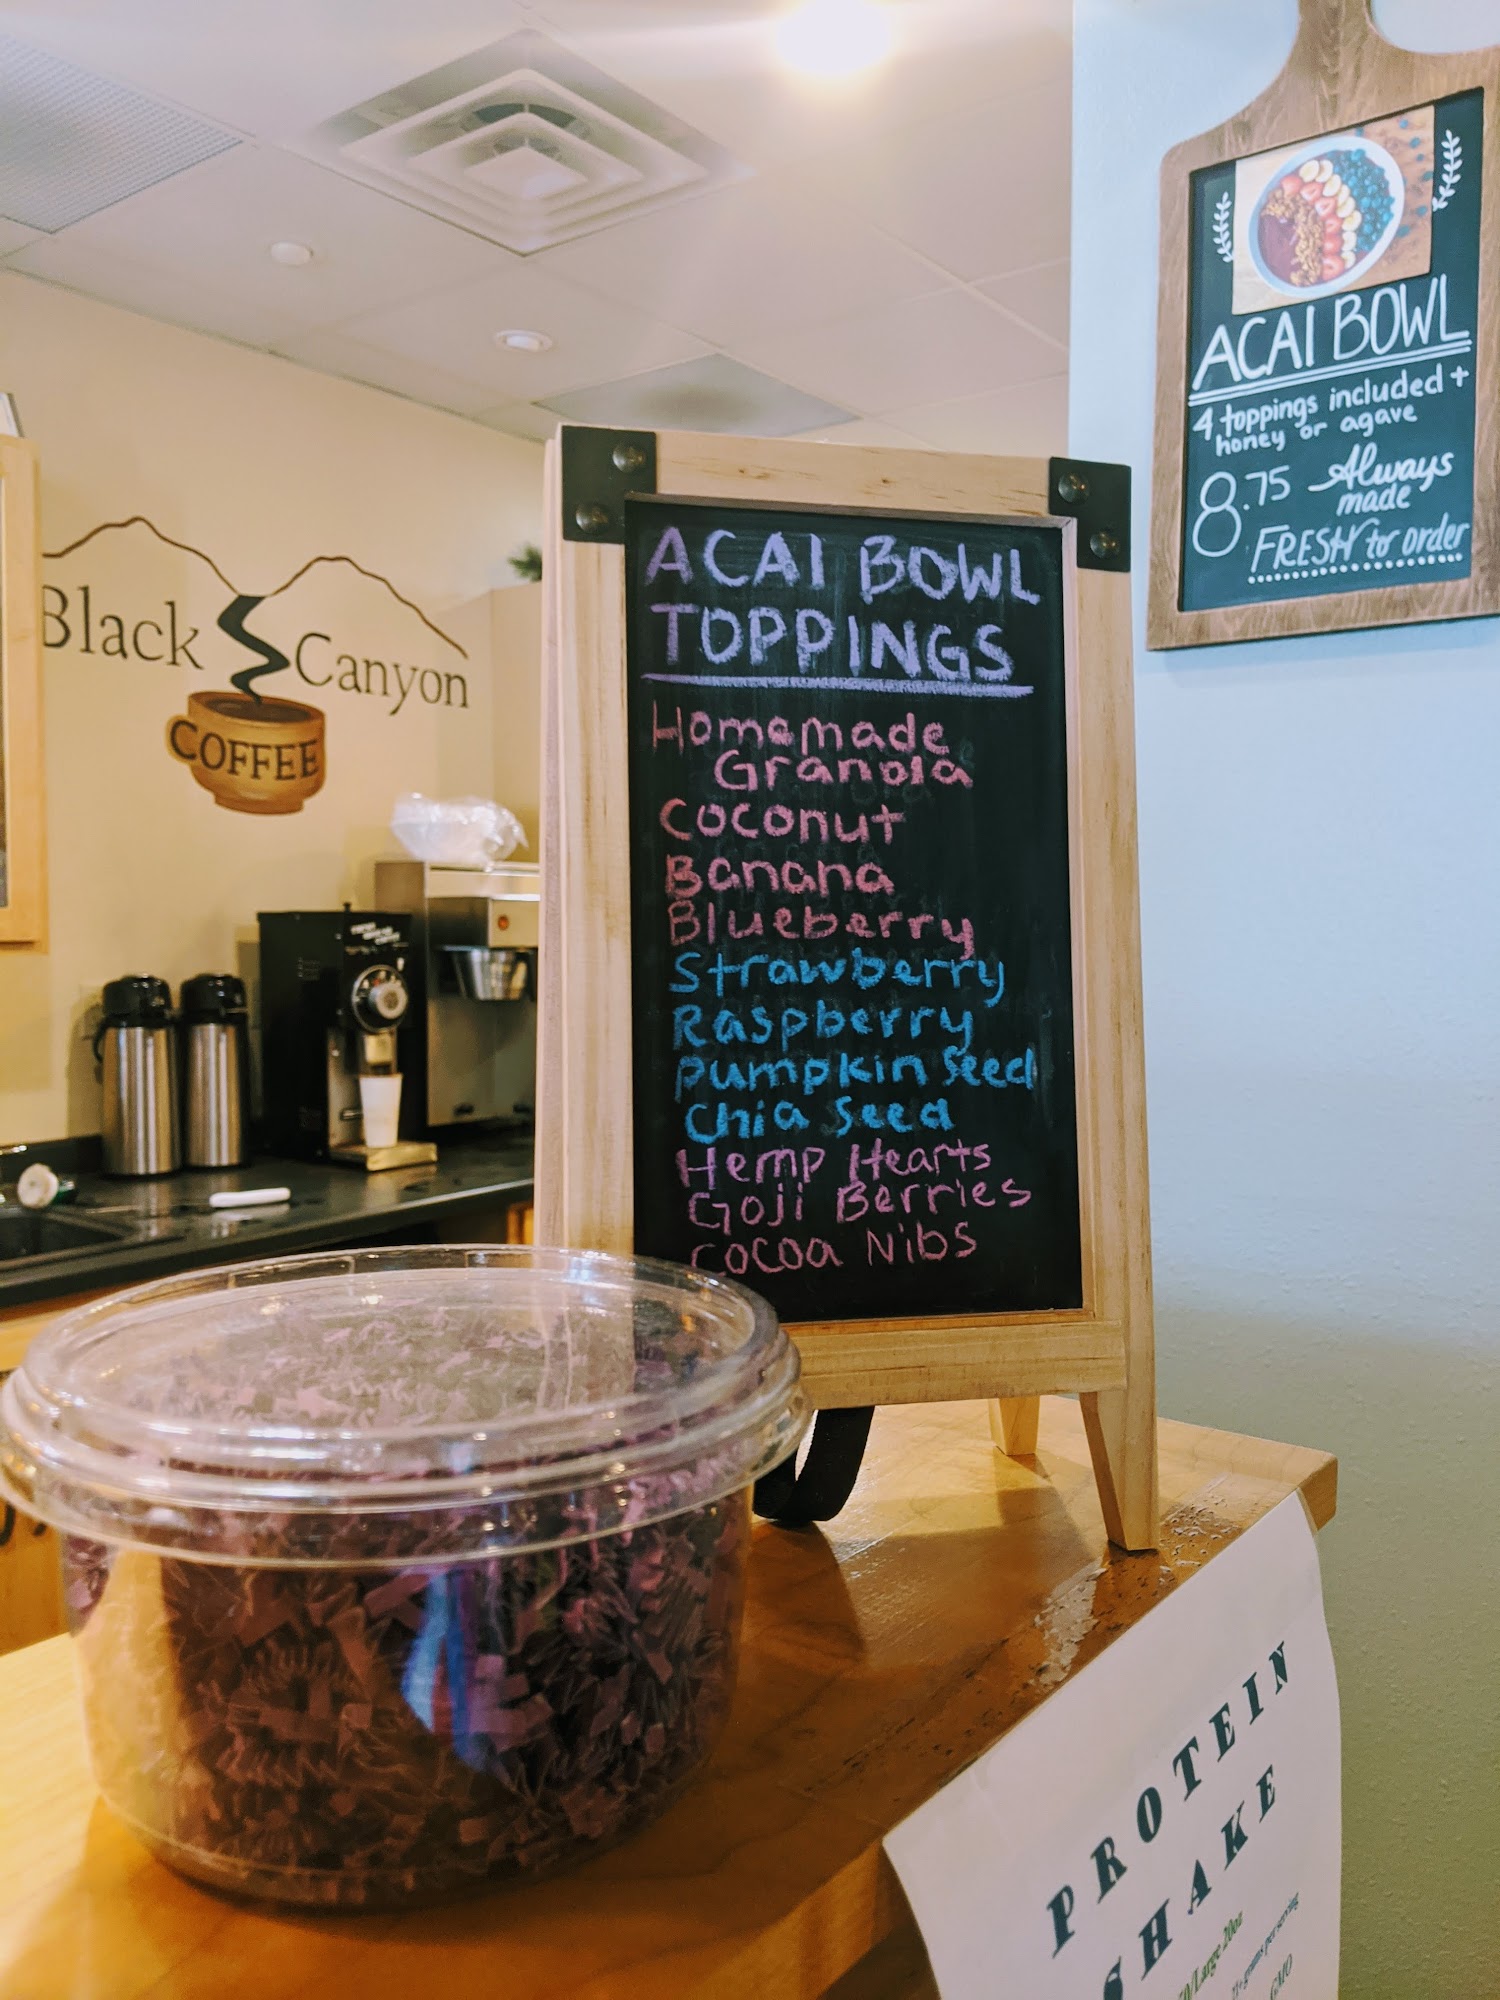 ACAI BOWL
4 toppings included +
honey or agave
8.75 Always
made
FRESH to order
ACAI BOWL
TOPPINGS
Homemade
Granola
Coconut
Banana
Blueberry
Strawberry
Raspberry
Pumpkin Seed
Chia Seed
Hemp Hearts
Goji Berries
Cocoa Nibs
Black Canyon
COFFEE
PROTEIN
SHAKE
/Large 20oz
grams per serving
GMO